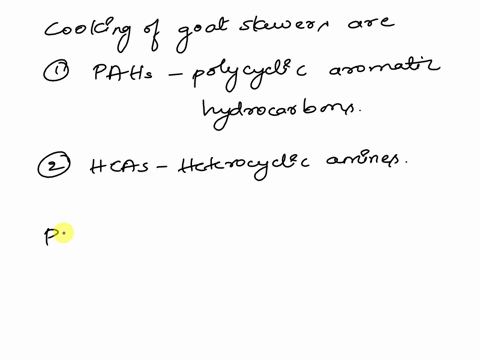 Cooking of goat skewers are
① PAHs - polycyclic aromatic
hydrocarbons.
② HCAs - Heterocyclic amines.
P.